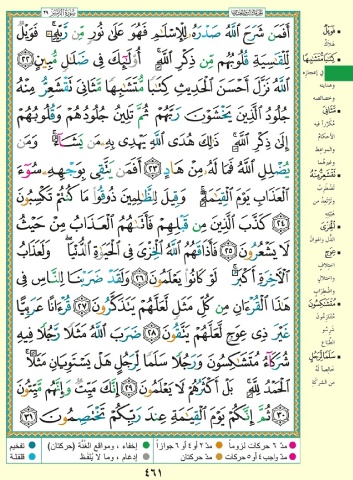 سورة الزمر ٣٩
أَفَمَن شَرَحَ اللَّهُ صَدْرَهُ لِلْإِسْلَامِ فَهُوَ عَلَىٰ نُورٍ مِّن رَّبِّهِ ۚ فَوَيْلٌ
لِّلْقَاسِيَةِ قُلُوبُهُم مِّن ذِكْرِ اللَّهِ ۚ أُولَٰئِكَ فِي ضَلَالٍ مُّبِينٍ ﴿٢٢﴾
اللَّهُ نَزَّلَ أَحْسَنَ الْحَدِيثِ كِتَابًا مُّتَشَابِهًا مَّثَانِيَ تَقْشَعِرُّ مِنْهُ
جُلُودُ الَّذِينَ يَخْشَوْنَ رَبَّهُمْ ثُمَّ تَلِينُ جُلُودُهُمْ وَقُلُوبُهُمْ
إِلَىٰ ذِكْرِ اللَّهِ ۚ ذَٰلِكَ هُدَى اللَّهِ يَهْدِي بِهِ مَن يَشَاءُ ۚ وَمَن
يُضْلِلِ اللَّهُ فَمَا لَهُ مِنْ هَادٍ ﴿٢٣﴾ أَفَمَن يَتَّقِي بِوَجْهِهِ سُوءَ
الْعَذَابِ يَوْمَ الْقِيَامَةِ ۚ وَقِيلَ لِلظَّالِمِينَ ذُوقُوا مَا كُنتُمْ تَكْسِبُونَ
﴿٢٤﴾ كَذَّبَ الَّذِينَ مِن قَبْلِهِمْ فَأَتَاهُمُ الْعَذَابُ مِنْ حَيْثُ
لَا يَشْعُرُونَ ﴿٢٥﴾ فَأَذَاقَهُمُ اللَّهُ الْخِزْيَ فِي الْحَيَاةِ الدُّنْيَا ۖ وَلَعَذَابُ
الْآخِرَةِ أَكْبَرُ ۚ لَوْ كَانُوا يَعْلَمُونَ ﴿٢٦﴾ وَلَقَدْ ضَرَبْنَا لِلنَّاسِ فِي
هَٰذَا الْقُرْءَانِ مِن كُلِّ مَثَلٍ لَّعَلَّهُمْ يَتَذَكَّرُونَ ﴿٢٧﴾ قُرْءَانًا عَرَبِيًّا
غَيْرَ ذِي عِوَجٍ لَّعَلَّهُمْ يَتَّقُونَ ﴿٢٨﴾ ضَرَبَ اللَّهُ مَثَلًا رَّجُلًا فِيهِ
شُرَكَاءُ مُتَشَاكِسُونَ وَرَجُلًا سَلَمًا لِّرَجُلٍ هَلْ يَسْتَوِيَانِ مَثَلًا ۚ
الْحَمْدُ لِلَّهِ ۚ بَلْ أَكْثَرُهُمْ لَا يَعْلَمُونَ ﴿٢٩﴾ إِنَّكَ مَيِّتٌ وَإِنَّهُم مَّيِّتُونَ
﴿٣٠﴾ ثُمَّ إِنَّكُمْ يَوْمَ الْقِيَامَةِ عِندَ رَبِّكُمْ تَخْتَصِمُونَ ﴿٣١﴾
فَوَيْلٌ
هَلاكٌ
كِتَابًا مُتَشَابِهًا
في إعجازه
وهدايته
وخصائصه
مَثَانِيَ
مُكَرَّرًا فيه
الأحكامُ
والمواعظ
وغيرهما
تَقْشَعِرُّ مِنْهُ
تَضْطَرِبُ
وترتعد من
الْخِزْيَ
الذلّ والهوان
عِوَجٍ
اختلاف
واختلال
واضطراب
مُتَشَاكِسُونَ
متنازعون
شَرِسُو
الطباع
سَلَمًا لِرَجُلٍ
خالصًا له
من الشركة
مدّ ٦ حركات لزوماً
مدّ ٢ أو ٤ أو ٦ جوازاً
إخفاء، ومواقع الغُنَّة (حركتان)
تفخيم
مدّ واجب ٤ أو ٥ حركات
مدّ حركتان
إدغام، وما لا يُلفَظ
قلقلة
٤٦١